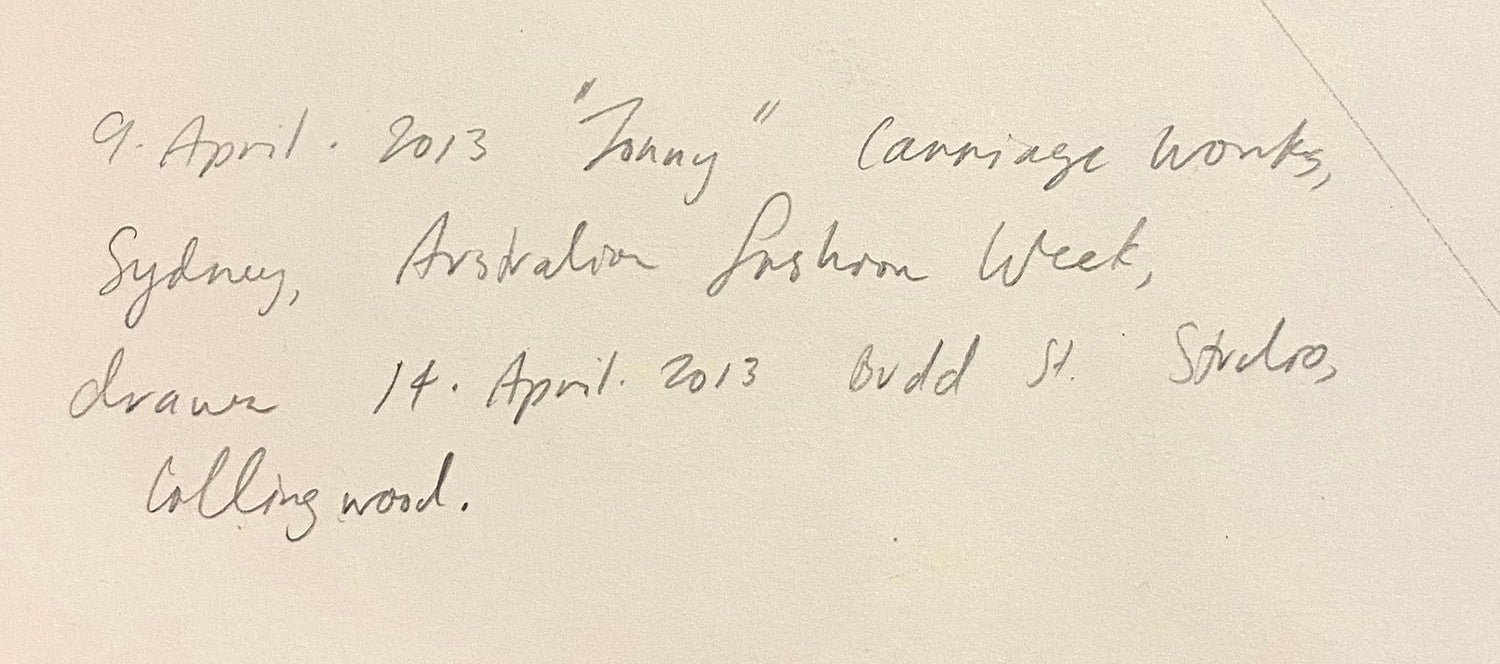 9. April. 2013 "Jonny" Carriage Works,
Sydney, Australian Fashion Week,
drawn 14. April. 2013 Budd St. Studios,
Collingwood.